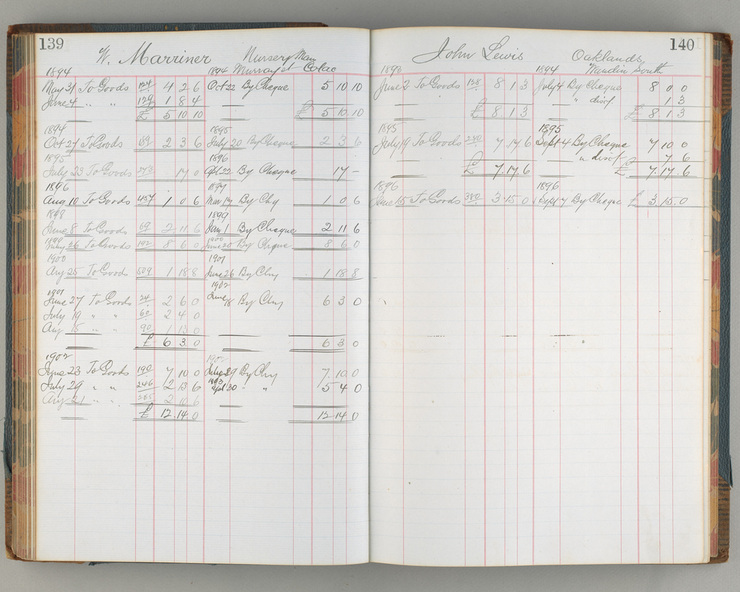 139
W. Marriner Nursery Man
Murray St Colac
1894 1894
May 31 To Goods 4 2 6 Oct 22 By Cheque 5 10 10
June 4 " " 1 8 4
£ 5 10 10 £ 5 10 10
1894 1895
Oct 27 To Goods 69 2 3 6 July 20 By Cheque 2 3 6
1895 1896
July 23 To Goods 17 0 Apl 22 By Cheque 17 -
1896 1897
Aug 10 To Goods 457 1 0 6 Mar 17 By Chq 1 0 6
1898 1899
June 8 To Goods 69 2 11 6 Jan 1 By Cheque 2 11 6
July 26 To Goods 192 8 6 0 June 20 By Cheque 8 6 0
1900 1901
Aug 25 To Goods 509 1 18 8 June 26 By Chq 1 18 8
1901 1902
June 27 To Goods 24 2 6 0 June 18 By Chq 6 3 0
July 19 " " 62 2 4 0
Aug 15 " " 90 1 13 0
£ 6 3 0 6 3 0
1902
June 23 To Goods 190 7 10 0 July 29 By Chq 7 10 0
July 29 " " 246 2 13 6 1903 Apl 20 " " 5 4 0
Aug 21 " " 285 2 10 6
£ 12 14 0 12 14 0
140
John Lewis Oaklands
Nurdin South
1894
June 2 To Goods 158 8 1 3 July 4 By Cheque 8 0 0
" disct 1 3
£ 8 1 3 £ 8 1 3
1895 1895
July 19 To Goods 230 7 17 6 Sept 4 By Cheque 7 10 0
" disct 7 6
£ 7 17 6 £ 7 17 6
1896 1896
15 To Goods 380 3 15 0 Sept 7 By Cheque £ 3 15 0